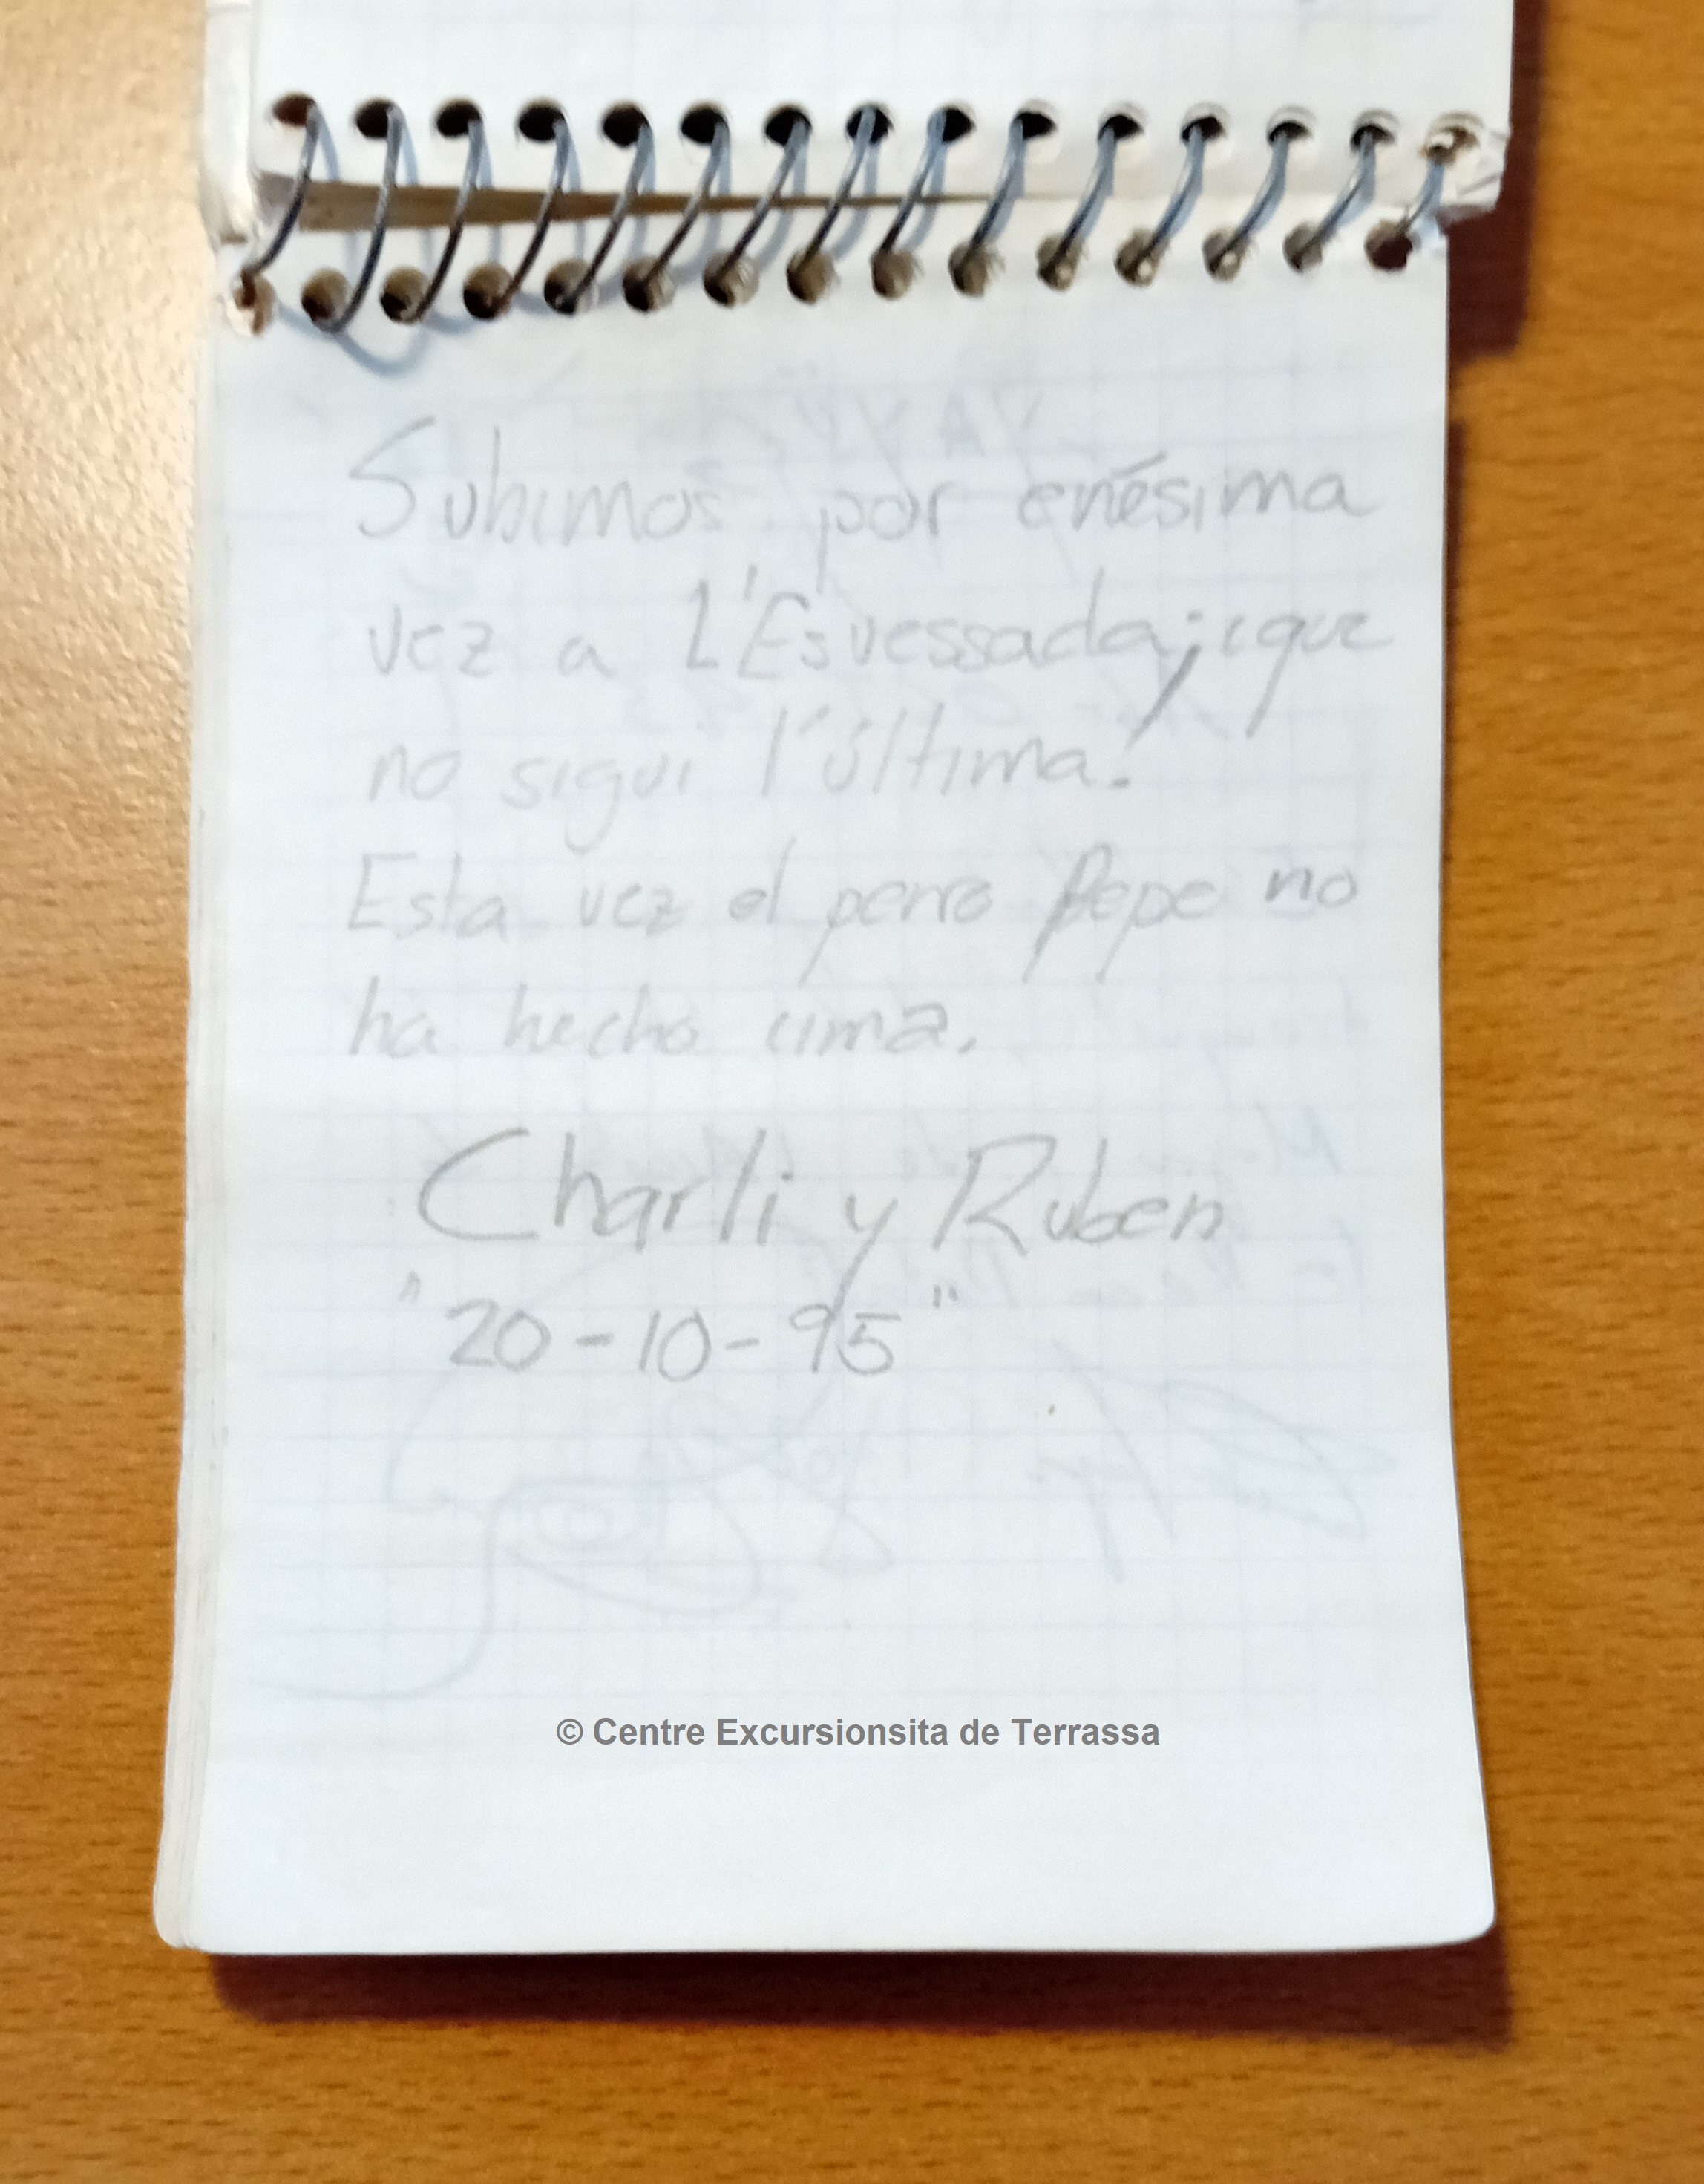 Subimos por enésima
vez a L'Esvessada; ¡que
no sigui l'última!
Esta vez el perro Pepe no
ha hecho cima.
Charli y Ruben
"20-10-95"
© Centre Excursionsita de Terrassa